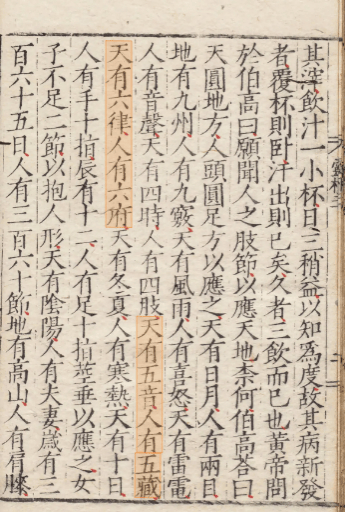 其滓飲汁一小杯日三稍益以知為度故其病新發
者覆杯則卧汗出則已矣久者三飲而已也黃帝問
於伯高曰願聞人之肢節以應天地柰何伯高荅曰
天圓地方人頭圓足方以應之天有日月人有兩目
地有九州人有九竅天有風雨人有喜怒天有雷電
人有音聲天有四時人有四肢天有五音人有五藏
天有六律人有六府天有冬夏人有寒熱天有十日
人有手十指辰有十二人有足十指莖垂以應之女
子不足二節以抱人形天有陰陽人有夫妻歲有三
百六十五日人有三百六十節地有高山人有肩膝